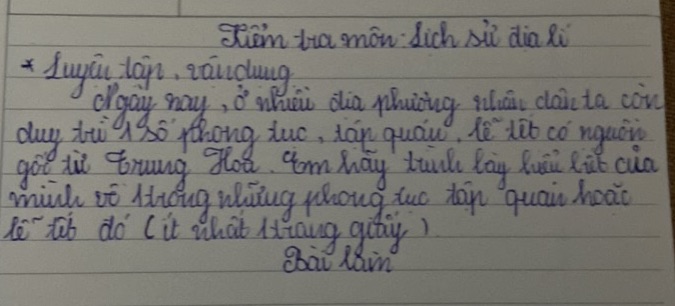 Kiểm tra môn: Lịch sử địa lí
* Luyện tập, vận dụng
Ngày nay, ở nhiều địa phương nhân dân ta còn
duy trì 1 số phong tục, tập quán, lễ tết có nguồn
gốc từ Trung Hoa. Em hãy trình bày hiểu biết của
mình về 1 trong những phong tục tập quán hoặc
lễ tết đó (ít nhất 1 trang giấy)
Bài làm